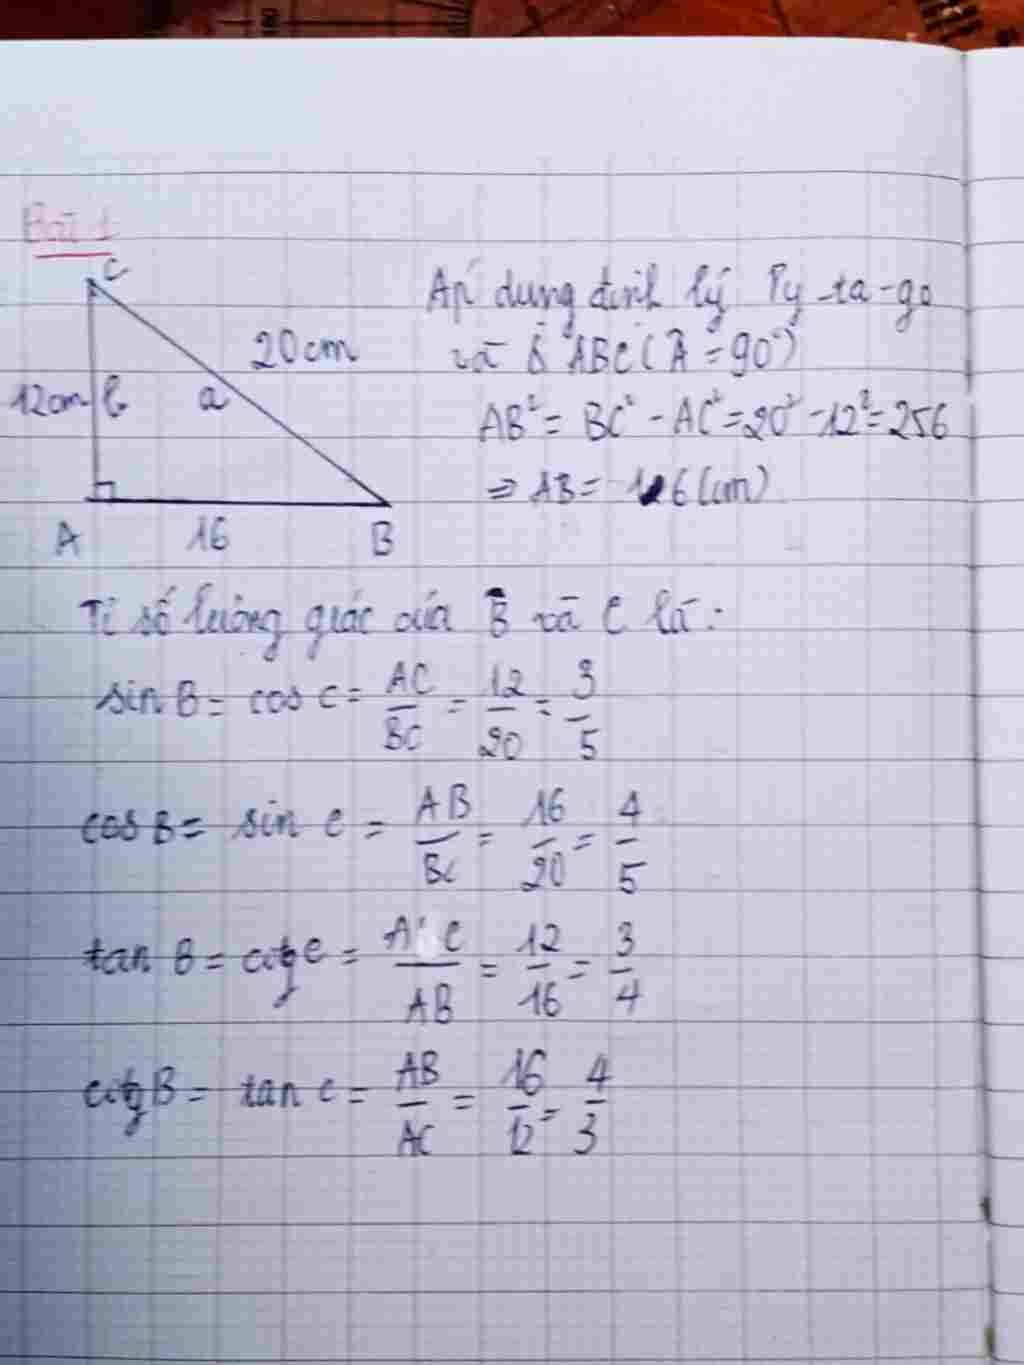 Bài 1
C
20cm
12cm b
a
A
16
B
Áp dụng định lý Py-ta-go
và Δ ABC (Â = 90°)
AB² = BC² - AC² = 20² - 12² = 256
⇒ AB = 16 (cm)
Tỉ số lượng giác của B và C là:
sin B = cos C = AC/BC = 12/20 = 3/5
cos B = sin C = AB/BC = 16/20 = 4/5
tan B = cotg C = AC/AB = 12/16 = 3/4
cotg B = tan C = AB/AC = 16/12 = 4/3